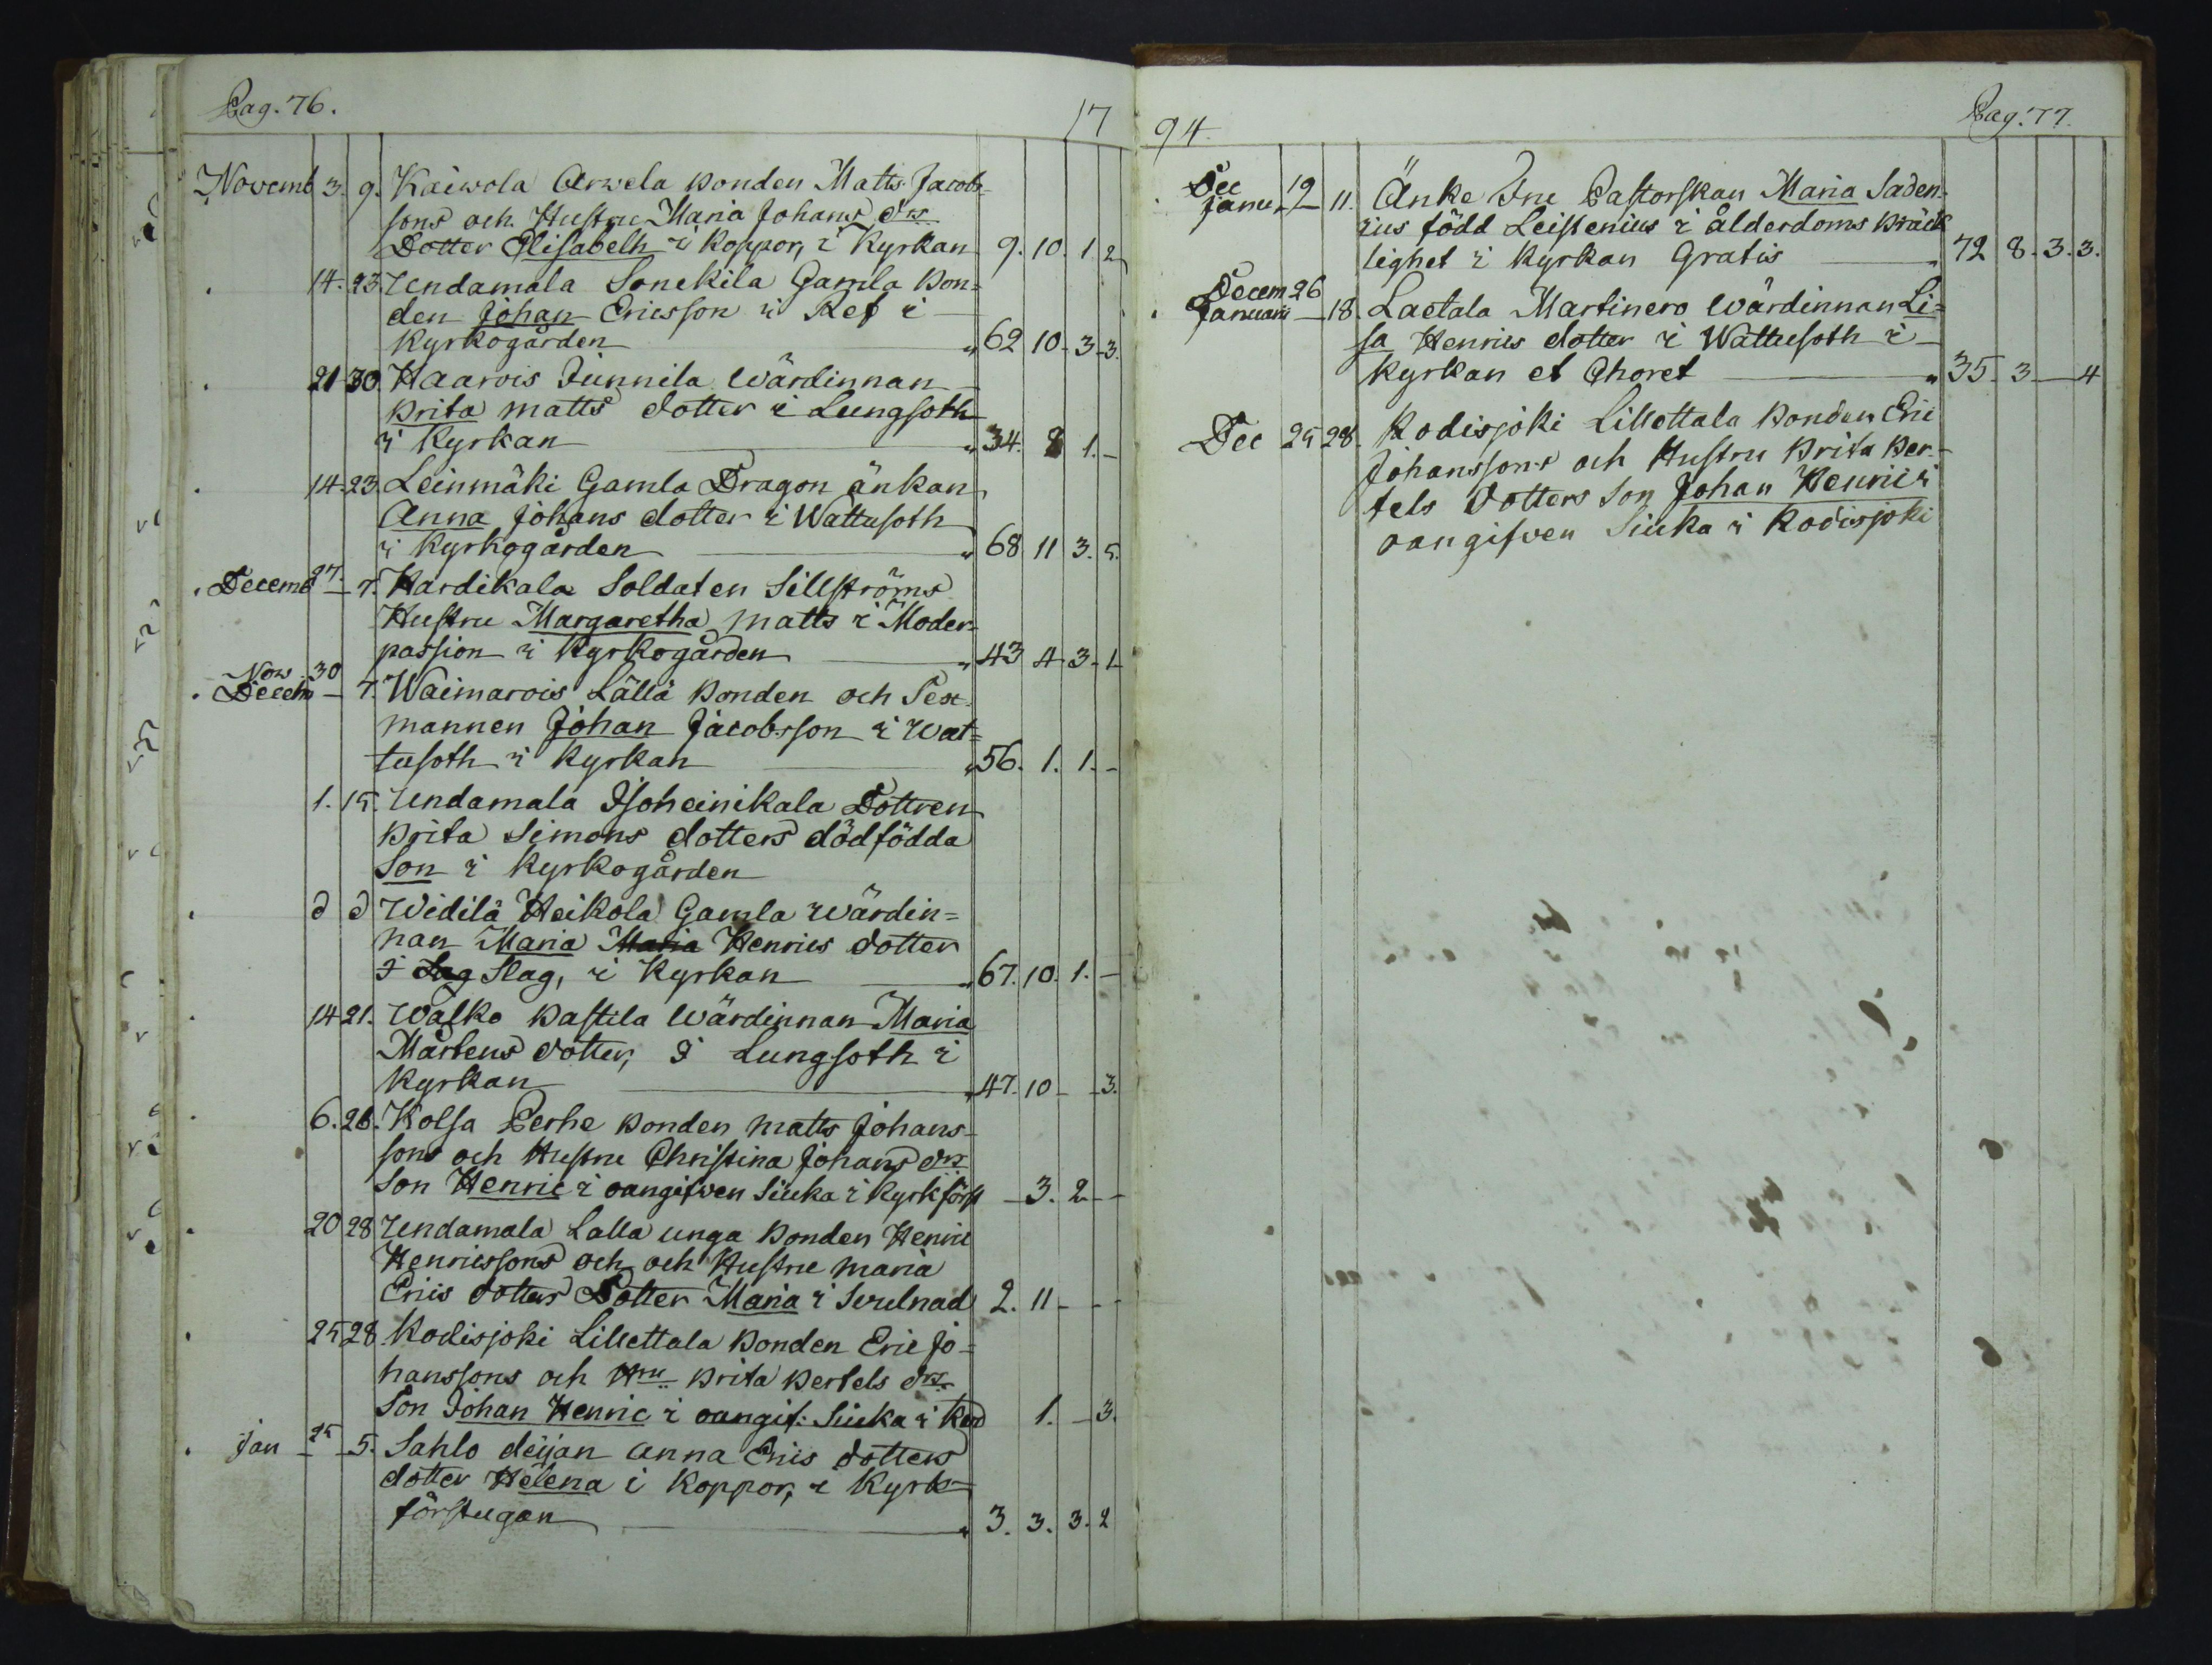 Pag. 76.
17
Novemb 3. 9. Kaiwola Arwela Bonden Matts Jacobs-
sons och Hustru Maria Johans drs
Dotter Elisabeth i koppor, i Kyrkan 9. 10. 1. 2
14. 23. Undamala Sonckila Gamla Bon=
den Johan Ericsson i Ref i
Kyrkogården 62 10. 3. 3.
21 30. Haarois Junnila Wärdinnan
Brita Matts dotter i Lungsoth
i Kyrkan 34. 8 1. -
14. 23. Leinmäki Gamla Dragon änkan
Anna Johans dotter i Wattusoth
i Kyrkogården 68 11 3. 5.
Decemb 27. - 7. Hardikala Soldaten Sillströms
Hustru Margaretha Matts i Moder-
passion i Kyrkogården 43 4 3. 1
Nov. 30
Decemb - 7. Waimarois Lällä Bonden och Sex
mannen Johan Jacobsson i Wat=
tusoth i Kyrkan 56. 1. 1. -
1. 15. Undamala Isoheinikala Dottren
Brita Simons dotters dödfödda
Son i Kyrkogården
d d Widilä Heikola Gamla Wärdin=
nan Maria Maria Henrics dotter
i Sag Slag, i Kyrkan 67. 10. 1. -
14 21. Walko Pastila Wärdinnan Maria
Mårtens dotter, i Lungsoth i
Kyrkan 47. 10 - 3.
6. 26. Kolsa Perhe Bonden Matts Johans-
sons och Hustru Christina Johans drs
Son Henric i oangifven Siuka i kyrkförst - 3. 2 - -
20 28 Undamala Lalla unga Bonden Henric
Henricssons och och Hustru Maria
Erics dotters Dotter Maria i Swulnad 2. 11 - - -
25 28 Kodisjoki Lillettala Bonden Eric Jo=
hanssons och Hru Brita Bertels drs
Son Johan Henric i oangif: Siuka i Kod 1. - 3.
Jan 25 - 5. Sahlo deijan Anna Erics dotters
dotter Helena i Koppor, i Kyrk=
förstugan 3. 3. 3. 2
94.
Pag. 77.
Dec 19
Janu. - 11. Änke Fru Pastorskan Maria Saden-
ius född Leistenius i ålderdoms bräck
lighet i Kyrkan Gratis 72 8. 3. 3.
Decem 26
Januari - 18. Laetala Martinero Wärdinnan Li=
sa Henrics dotter i Wattusoth i
Kyrkan et Choret 35. 3 - 4
Dec 25 28. Kodisjoki Lillettala Bonden Eric
Johanssons och Hustru Brita Ber-
tels Dotters Son Johan Henric i
oangifven Siuka i Kodisjoki